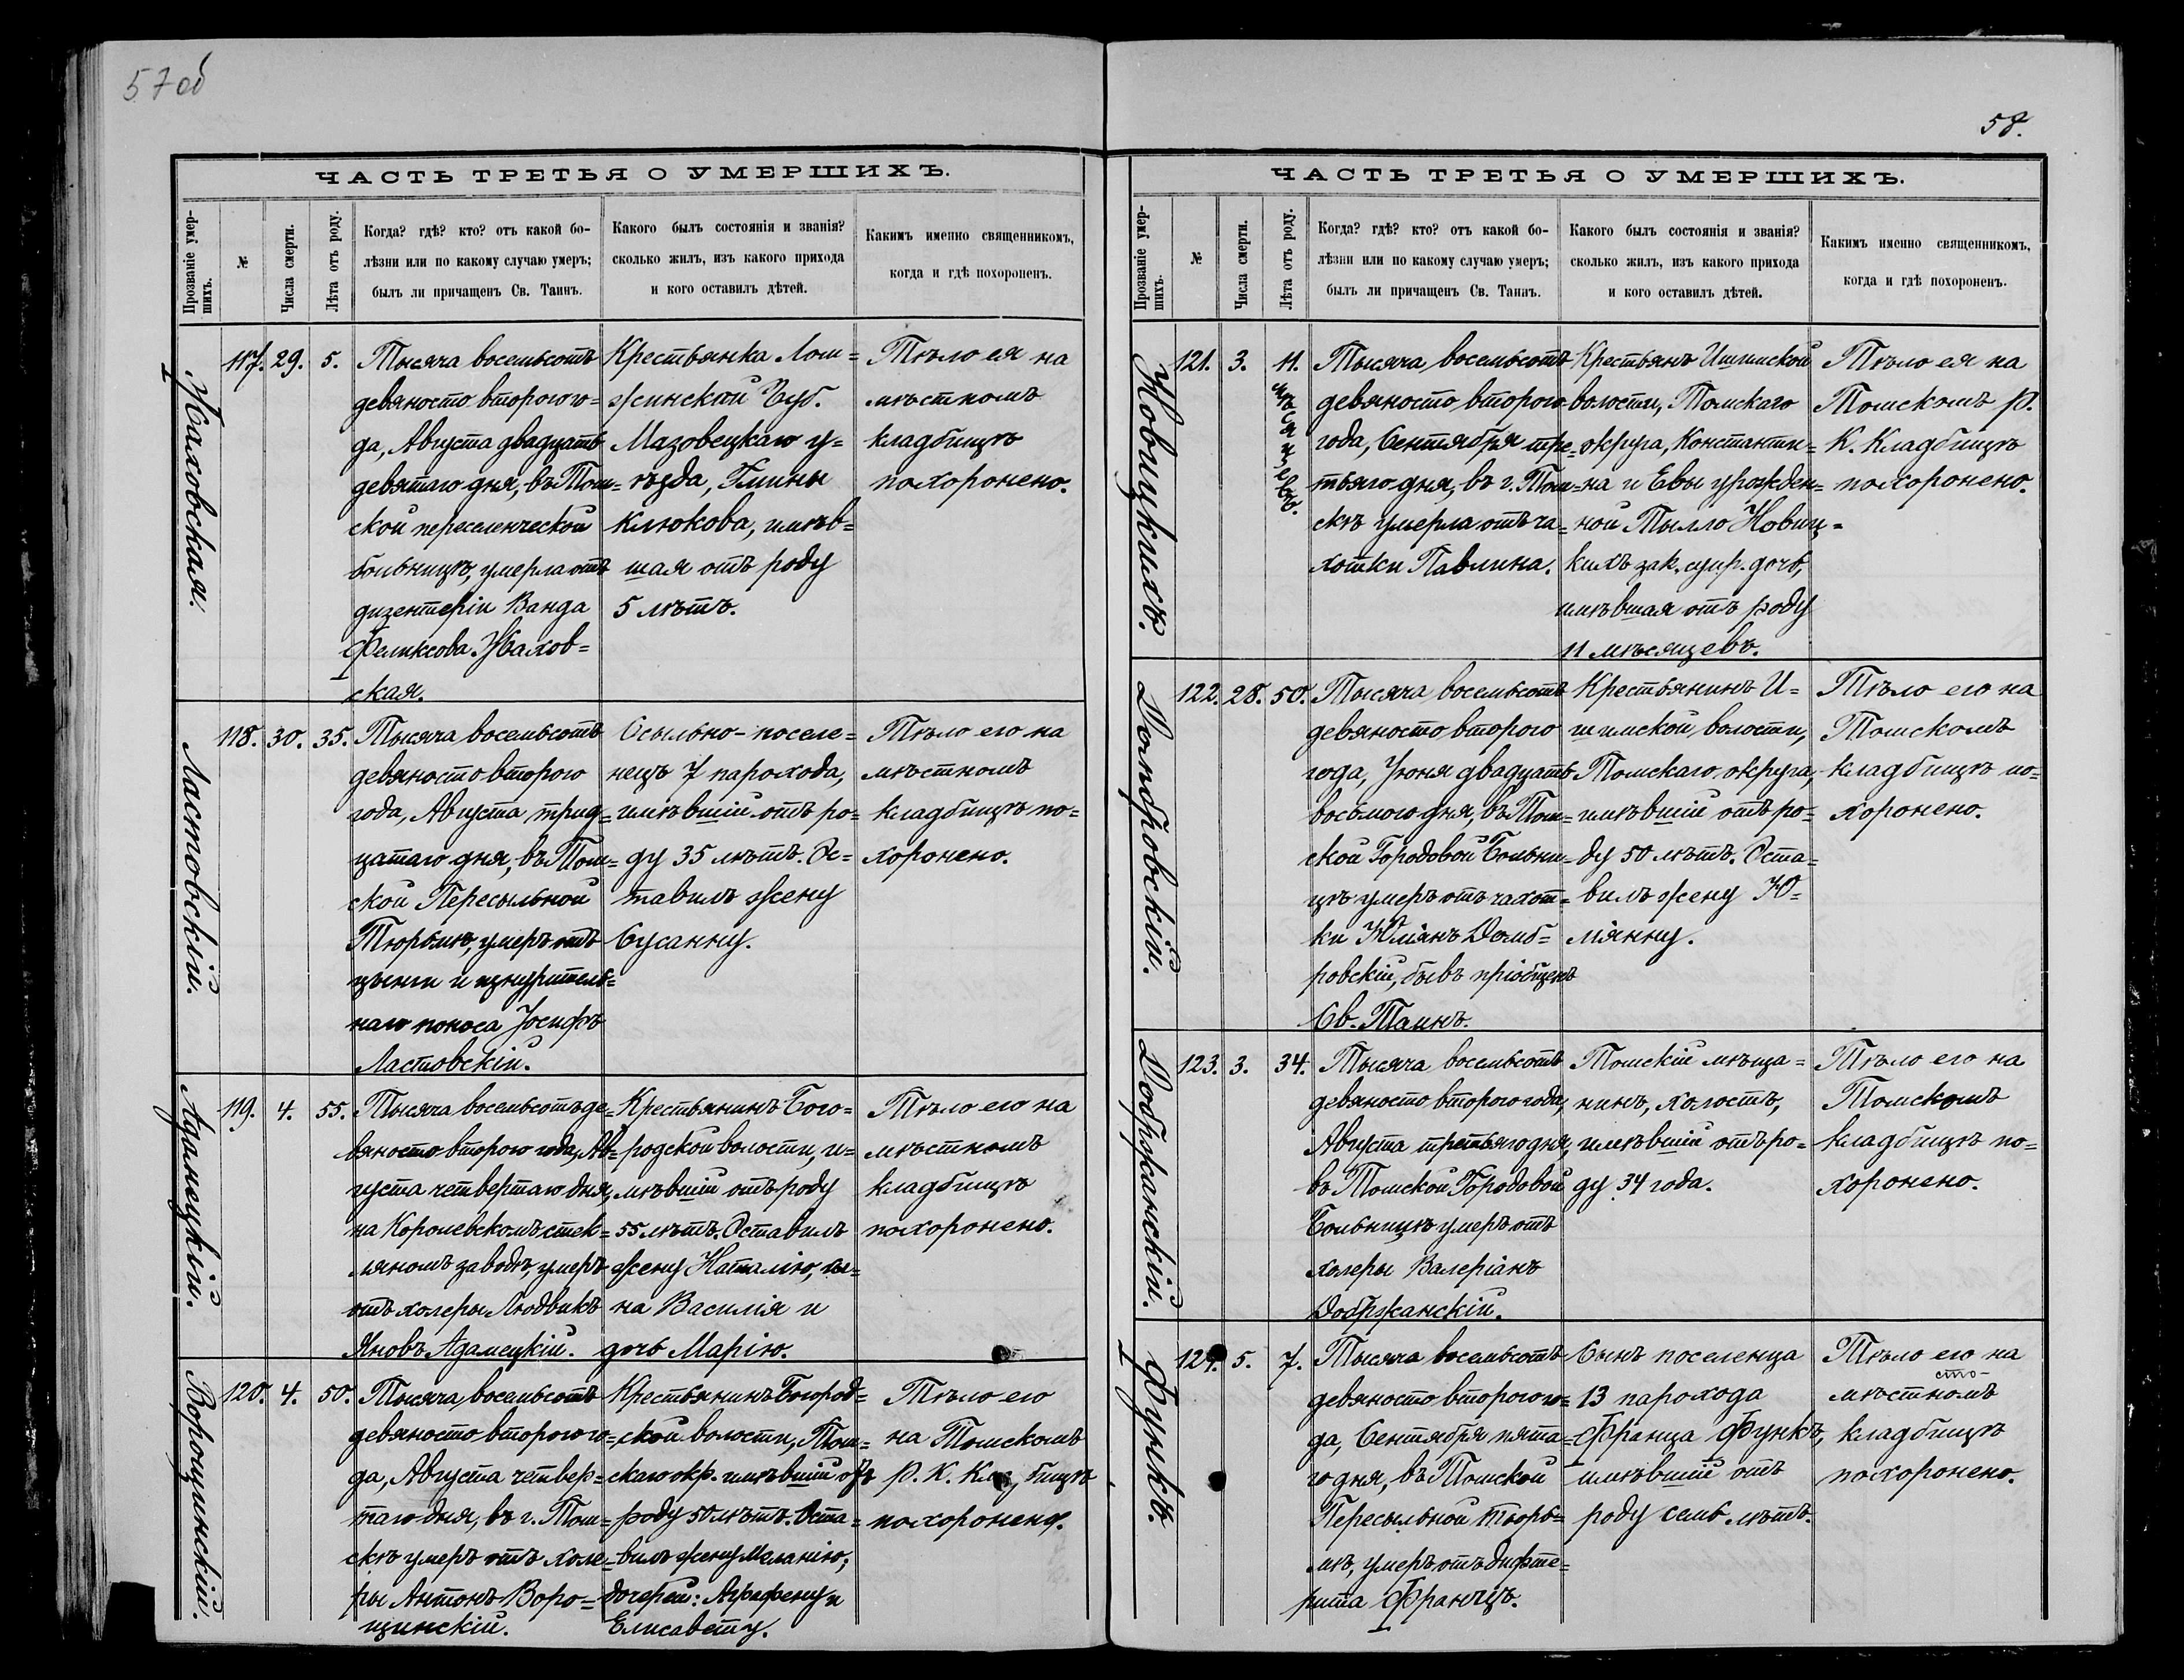 57 об
ЧАСТЬ ТРЕТЬЯ О УМЕРШИХЪ.
Прозваніе умер-
шихъ.
№
Числа смерти.
Лѣта отъ роду.
Когда? гдѣ? кто? отъ какой бо-
лѣзни или по какому случаю умеръ;
былъ ли причащенъ Св. Таинъ.
Какого былъ состоянія и званія?
сколько жилъ, изъ какого прихода
и кого оставилъ дѣтей.
Какимъ именно священникомъ,
когда и гдѣ похороненъ.
117. 29. 5.
Тысяча восемьсотъ
девяносто второго го-
да, Августа двадцать
девятаго дня, въ Том=
ской переселенческой
больницѣ, умерла отъ
дизентеріи Ванда
Феликсова
ская.
Крестьянка Лом=
жинской Губ.
Мазовецкаго у=
ѣзда, Гмины
Клюкова, имѣв=
шая отъ роду
5 лѣтъ.
Тѣло ея на
мѣстномъ
кладбищѣ
похоронено.
Ластовскій.
118. 30. 35.
Тысяча восемьсотъ
девяносто второго
года, Августа трид=
цатаго дня, въ Том=
ской Пересыльной
Тюрьмѣ, умеръ отъ
цынги и изнуритель=
наго поноса Іосифъ
Ластовскій.
Ссыльно-поселе=
нецъ 7 парохода,
имѣвшій отъ ро=
ду 35 лѣтъ. Ос=
тавилъ жену
Сусанну.
Тѣло его на
мѣстномъ
кладбищѣ по=
хоронено.
Адамецкій.
119. 4. 55.
Тысяча восемьсотъ де=
вяносто второго года, Ав=
густа четвертаго дня,
на Королевскомъ стек=
ляномъ заводѣ, умеръ
отъ холеры Людвикъ
Яновъ Адамецкій.
Крестьянинъ Бого=
родской волости, и=
мѣвшій отъ роду
55 лѣтъ. Оставилъ
жену Наталію, сы=
на Василія и
дочь Марію.
Тѣло его на
мѣстномъ
кладбищѣ
похоронено.
Ворощинскій.
120. 4. 50.
Тысяча восемьсотъ
девяносто второго го=
да, Августа четвер=
таго дня, въ г. Том=
скѣ умеръ отъ холе=
ры Антонъ Воро=
щинскій.
Крестьянинъ Богород=
ской волости, Том=
скаго окр. имѣвшій отъ
роду 50 лѣтъ. Оста=
вилъ жену Меланію,
дочерей: Агрефену и
Елисавету.
Тѣло его
на Томскомъ
Р. К. Кладбищѣ
похоронено.
58.
ЧАСТЬ ТРЕТЬЯ О УМЕРШИХЪ.
Прозваніе умер-
шихъ.
№
Числа смерти.
Лѣта отъ роду.
Когда? гдѣ? кто? отъ какой бо-
лѣзни или по какому случаю умеръ;
былъ ли причащенъ Св. Таинъ.
Какого былъ состоянія и званія?
сколько жилъ, изъ какого прихода
и кого оставилъ дѣтей.
Какимъ именно священникомъ,
когда и гдѣ похороненъ.
Новицкихъ.
121. 3. 11.
мѣсяцевъ.
Тысяча восемьсотъ
девяносто второго
года, Сентября тре=
тьяго дня, въ г. Том=
скѣ умерла отъ ча=
хотки Павлина.
Крестьянъ Ишимской
волости, Томскаго
округа, Константи=
на и Евы урожден=
ной Тылло Новиц=
кихъ зак. супр. дочь,
имѣвшая отъ роду
11 мѣсяцевъ.
Тѣло ея на
Томскомъ Р.
К. Кладбищѣ
похоронено.
Домбровскій.
122. 28. 50.
Тысяча восемьсотъ
девяносто второго
года, Іюня двадцать
восьмого дня, въ Том=
ской Городовой Больни=
цѣ умеръ отъ чахот=
ки Юліянъ Домб=
ровскій, бывъ пріобщенъ
Св. Таинъ.
Крестьянинъ И=
шимской волости,
Томскаго округа,
имѣвшій отъ ро=
ду 50 лѣтъ. Оста=
вилъ жену Ю=
лiянну.
Тѣло его на
Томскомъ
кладбищѣ по=
хоронено.
Добржанскій.
123. 3. 34.
Тысяча восемьсотъ
девяносто второго года,
Августа третьяго дня,
въ Томской Городовой
Больницѣ умеръ отъ
холеры Валеріанъ
Добржанскій.
Томскій мѣща=
нинъ, холостъ,
имѣвшій отъ ро=
ду 34 года.
Тѣло его на
Томскомъ
кладбищѣ по=
хоронено.
Функъ.
124. 5. 7.
Тысяча восемьсотъ
девяносто второго го=
да, Сентября пята=
го дня, въ Томской
Пересыльной тюрь=
мѣ, умеръ отъ дифте=
рита Францъ.
Сынъ поселенца
13 парохода
Франца Функъ,
имѣвшій отъ
роду семь лѣтъ.
Тѣло его на
мѣстномъ
кладбищѣ
похоронено.